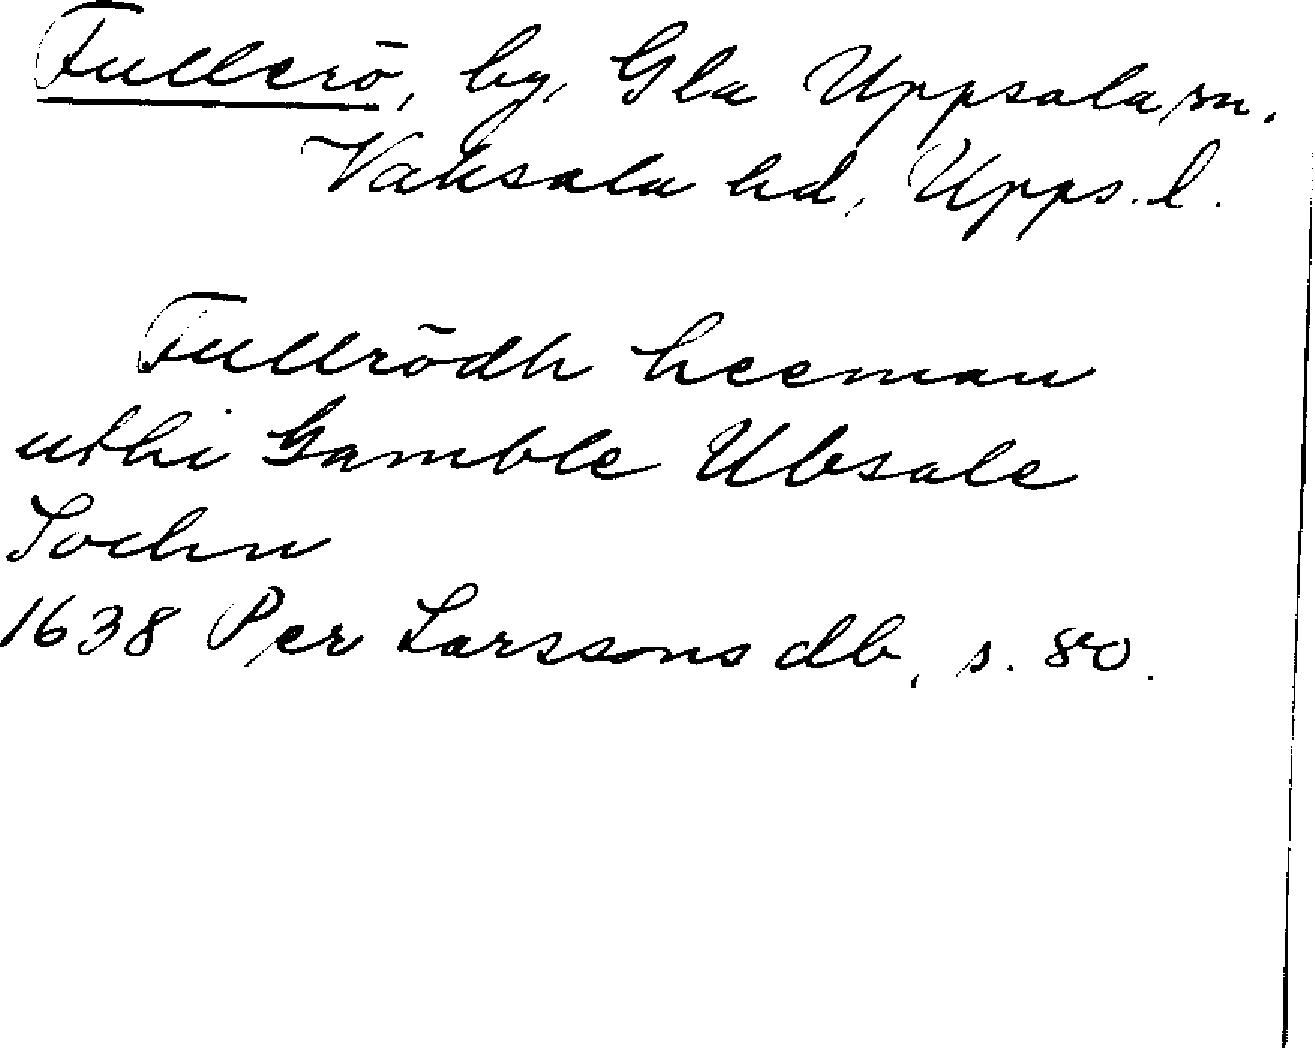 Fullerö, by, Gla Uppsala sn.
Vaksala hd, Upps. l.
Fullrödh heeman
uthi Gamble Ubsale
Sochn
1638 Per Larssons db, s. 80.